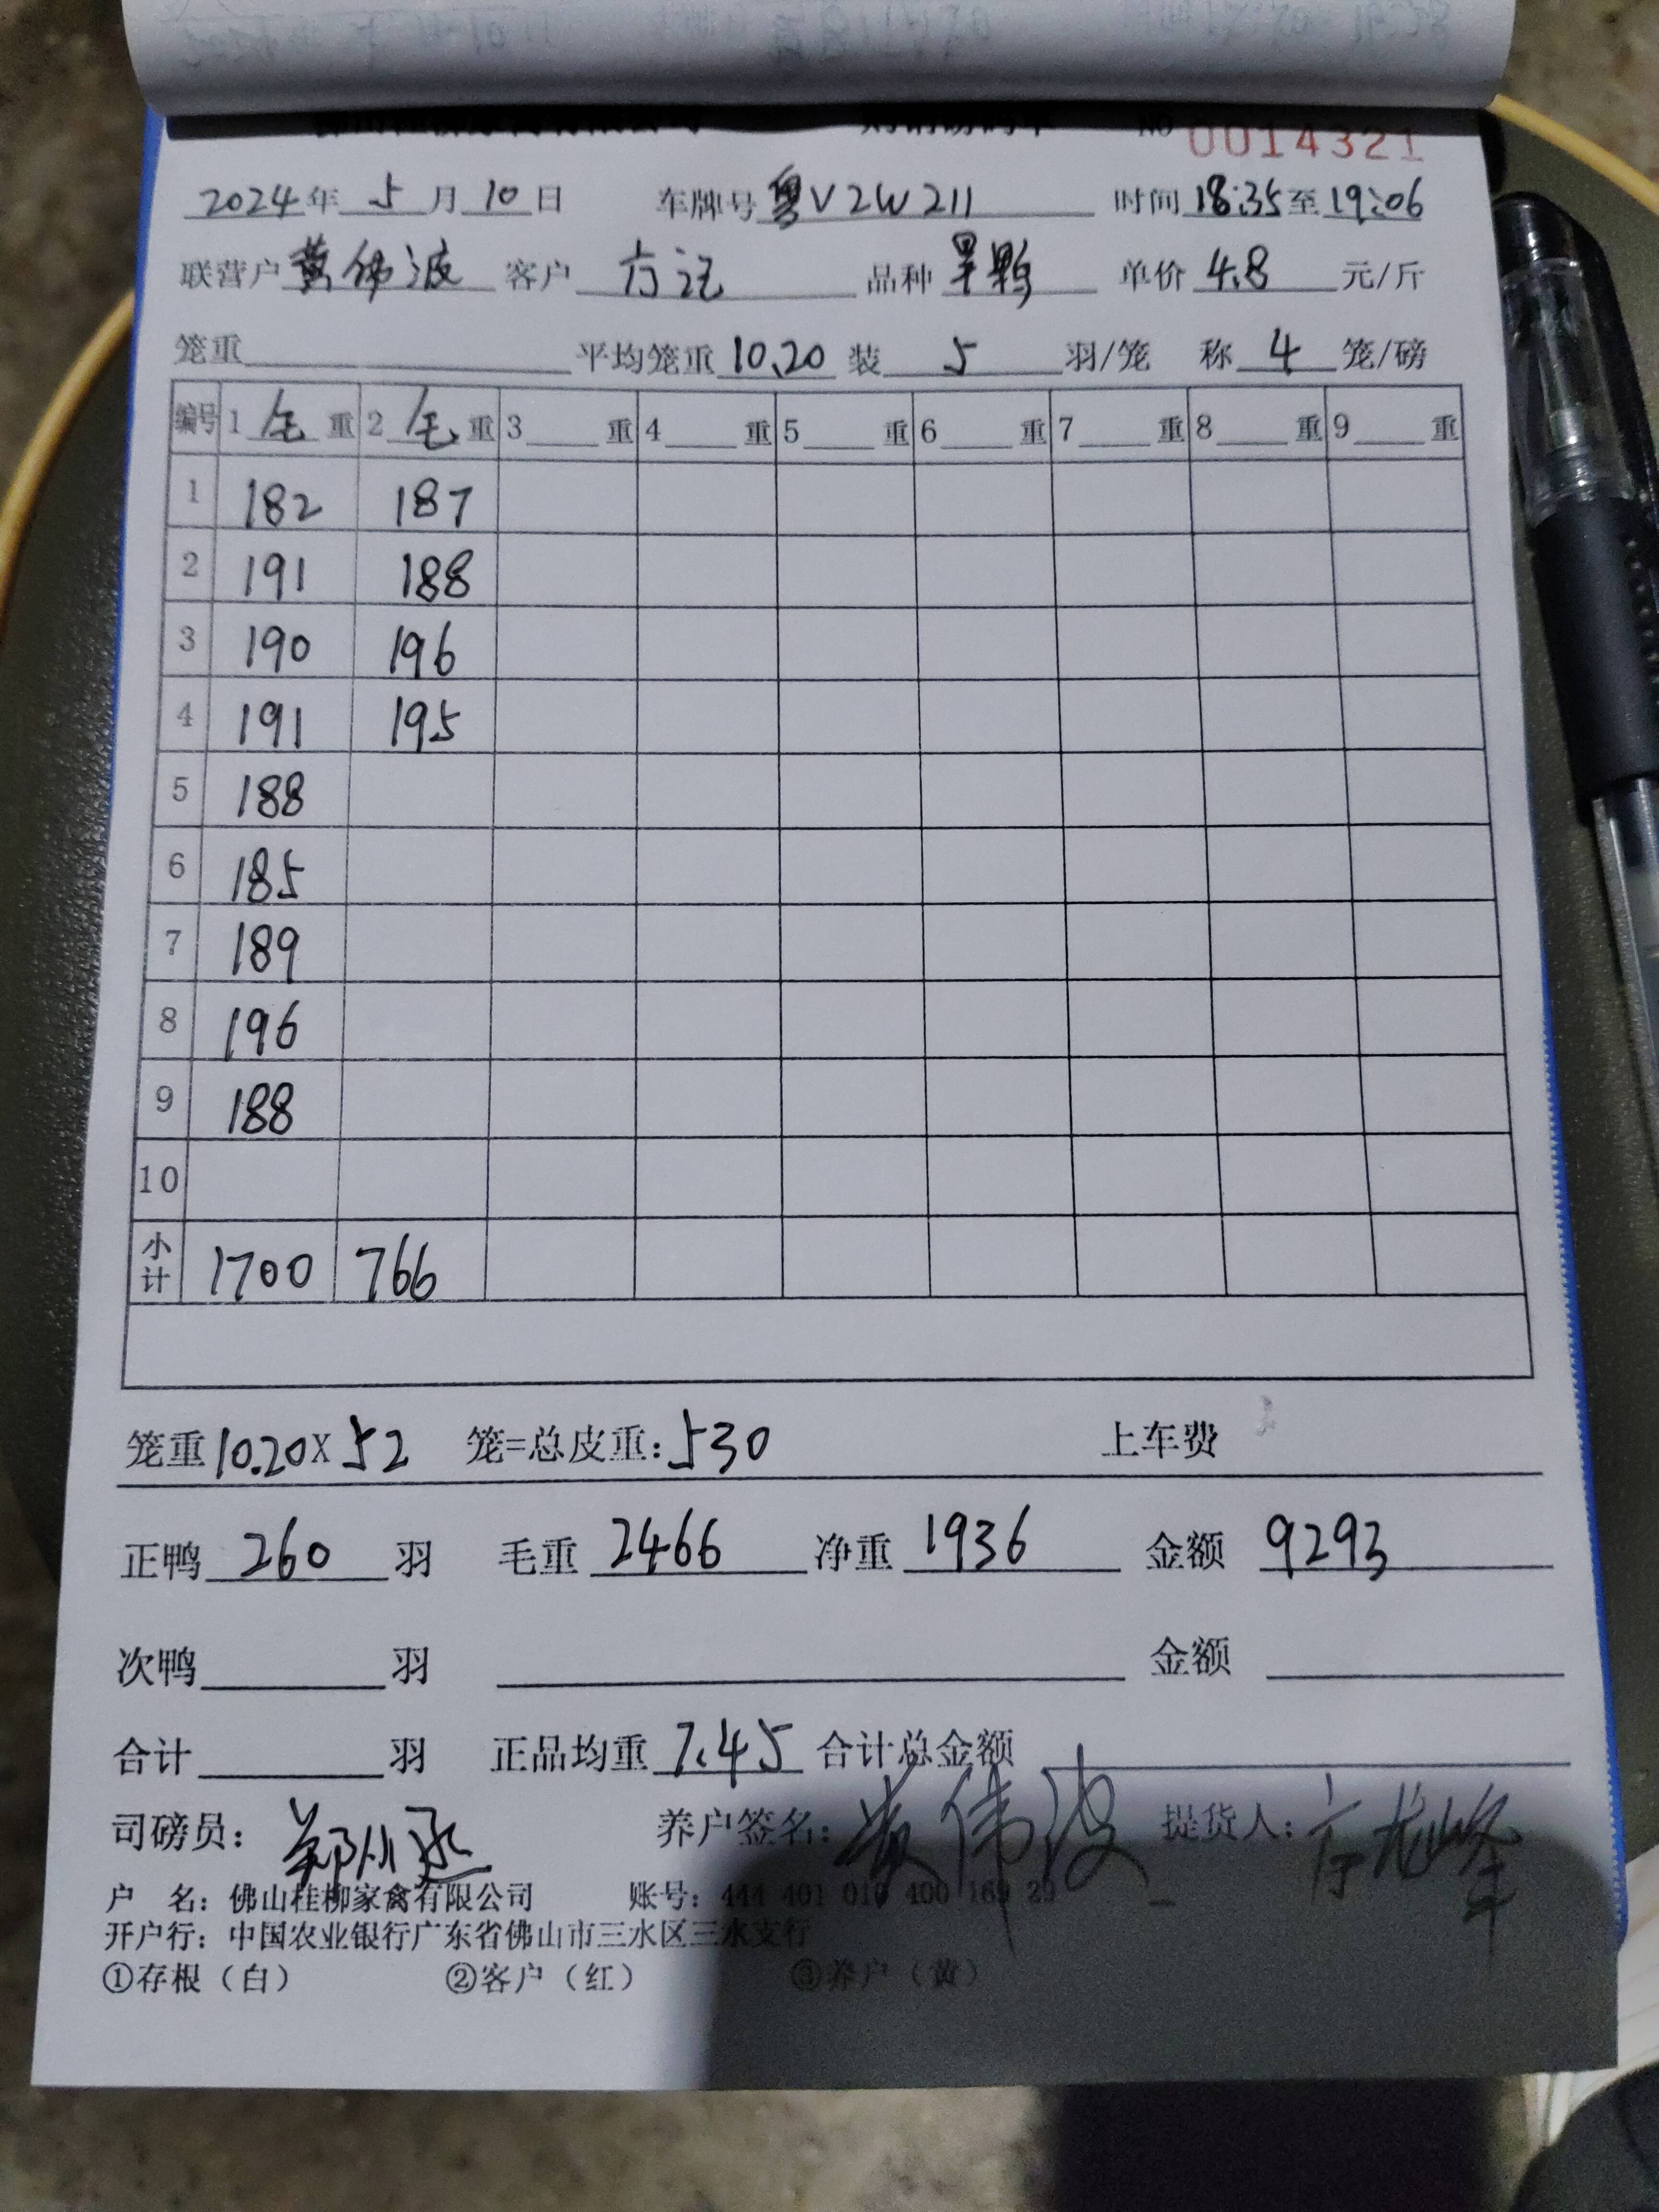 NO 0014321
2024年 5 月 10 日 车牌号 粤V2W211 时间 18:35 至 19:06
联营户 黄伟波 客户 方记 品种 单价 4.8 元/斤
笼重 平均笼重 10.20 装 5 羽/笼 称 4 笼/磅
编号 1 毛 重 2 毛 重 3 重 4 重 5 重 6 重 7 重 8 重 9 重
1 182 187
2 191 188
3 190 196
4 191 195
5 188
6 185
7 189
8 196
9 188
10
小计 1700 766
笼重 10.20 X 52 笼=总皮重: 530 上车费
正鸭 260 羽 毛重 2466 净重 1936 金额 9293
次鸭 羽 金额
合计 羽 正品均重 7.45 合计总金额
司磅员: 养户签名: 黄伟波 提货人: 方龙峰
户 名: 佛山桂柳家禽有限公司 账号: 444 401 010 400 169 29
开户行: 中国农业银行广东省佛山市三水区三水支行
①存根（白） ②客户（红） ③养户（黄）